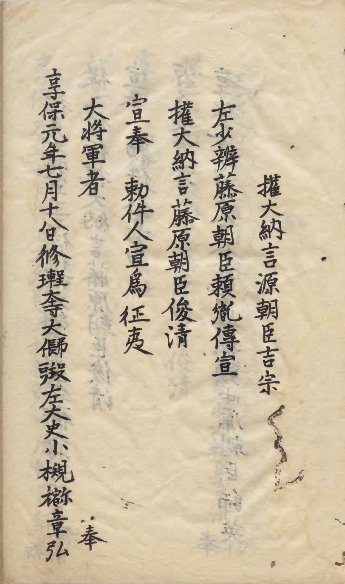 權大納言源朝臣吉宗
左少辨藤原朝臣頼胤傳宣
權大納言藤原朝臣俊清
宣奉　勅件人宣爲征夷
大将軍者
享保元年七月十八日修理東大寺大佛長官左大史小槻宿祢章弘
奉